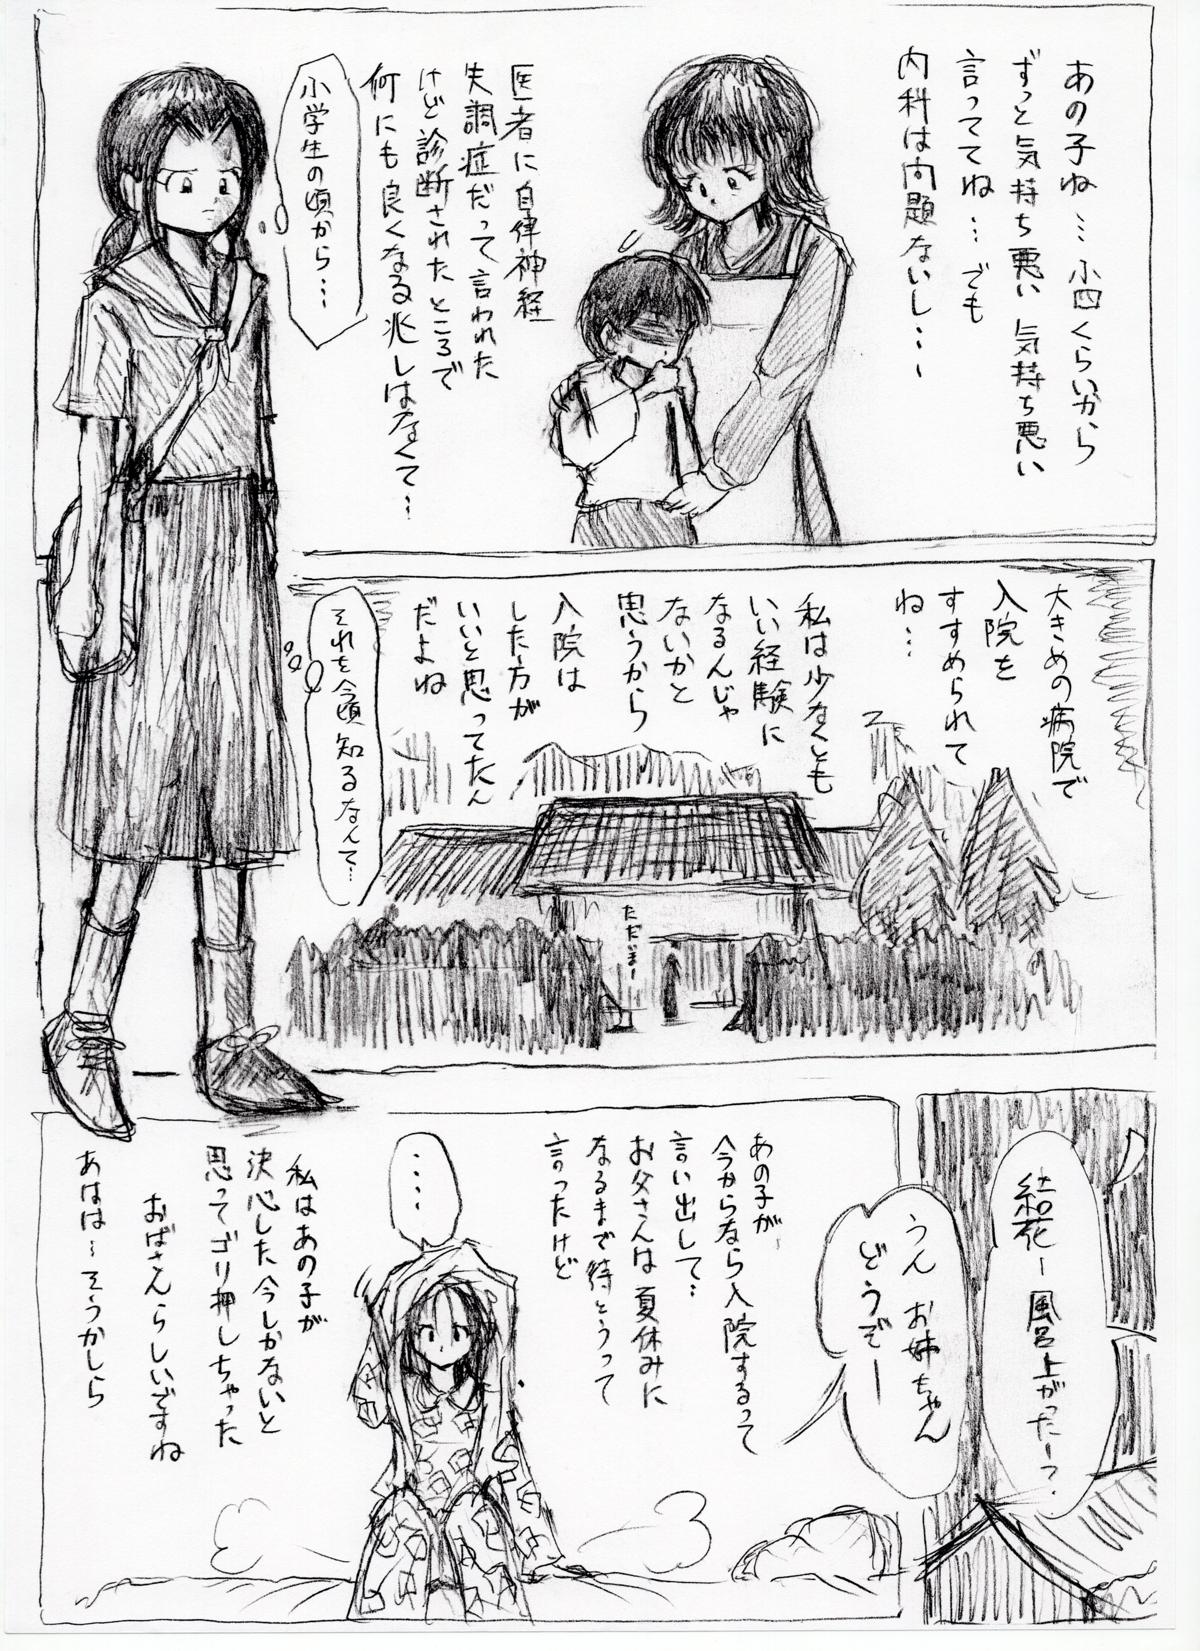 あの子ね…小四くらいから
ずっと気持ち悪い気持ち悪い
言っててね…でも
内科は問題ないし…ー
医者に自律神経
失調症だって言われた
けど診断されたところで
何にも良くなる兆しはなくて…
小学生の頃から…
大きめの病院で
入院を
すすめられて
ね…
私は少なくとも
いい経験に
なるんじゃ
ないかと
思うから
入院は
した方が
いいと思ってたん
だよね
それを今頃知るなんて…
ただいまー
結花ー風呂上がったー？
うんお姉ちゃん
どうぞー
あの子が
今からなら入院するって
言い出して…
お父さんは夏休みに
なるまで待とうって
言ったけど
……
私はあの子が
決心した今しかないと
思ってゴリ押しちゃった
おばさんらしいですね
あはは〜そうかしら